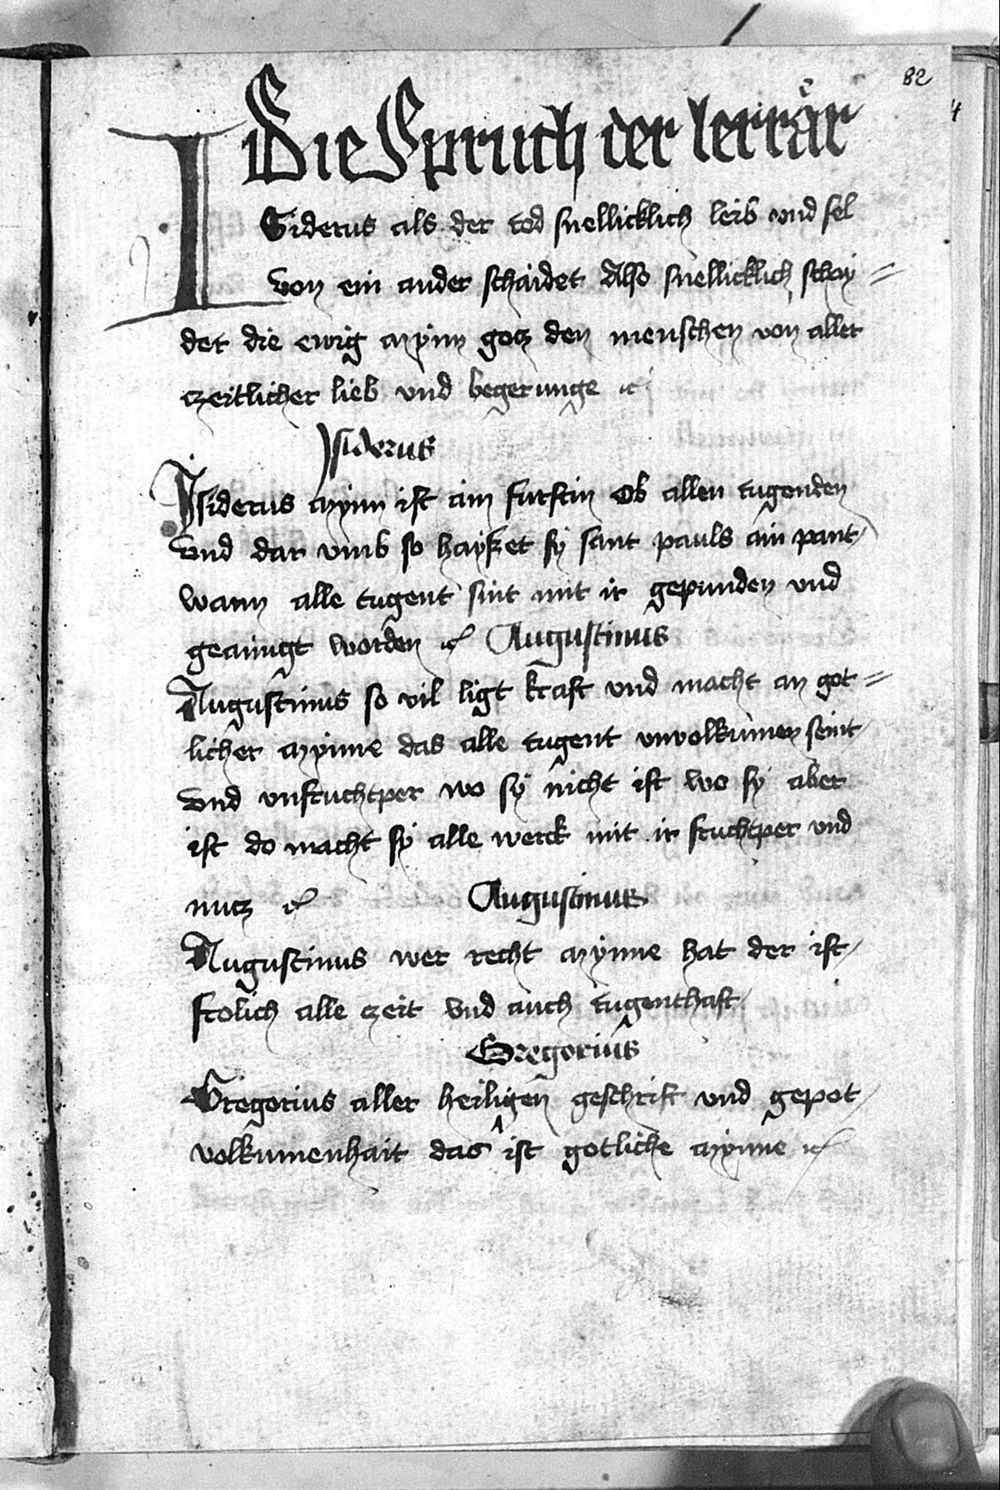 82
Die Spruch der lerrär
ISiderus als der tod snellicklich leib vnd sel
von ein ander schaidet Also snellicklich schay=
det die ewig mynn gotz den menschen von aller
czeitlicher lieb vnd begerunge etc
Isiderus
Isiderus mynn ist ain furstin ob allen tugenden
vnd dar vmb so haysset sy sant pauls ain pant
wann alle tugent sint mit ir gepunden vnd
geainigt worden etc Augustinus
Augustinus so vil ligt kraft vnd macht an got=
licher mynne das alle tugent vnvolkumen seint
vnd vnfruchtper wo sy nicht ist wo sy aber
ist do macht sy alle werck mit ir fruchtper vnd
nutz etc Augustinus
Augustinus wer recht mynne hat der ist
frolich alle czeit vnd auch tugenthaft
Gregorius
Gregorius aller heiligen geschrift vnd gepot
volkumenhait das ist gotliche mynne etc